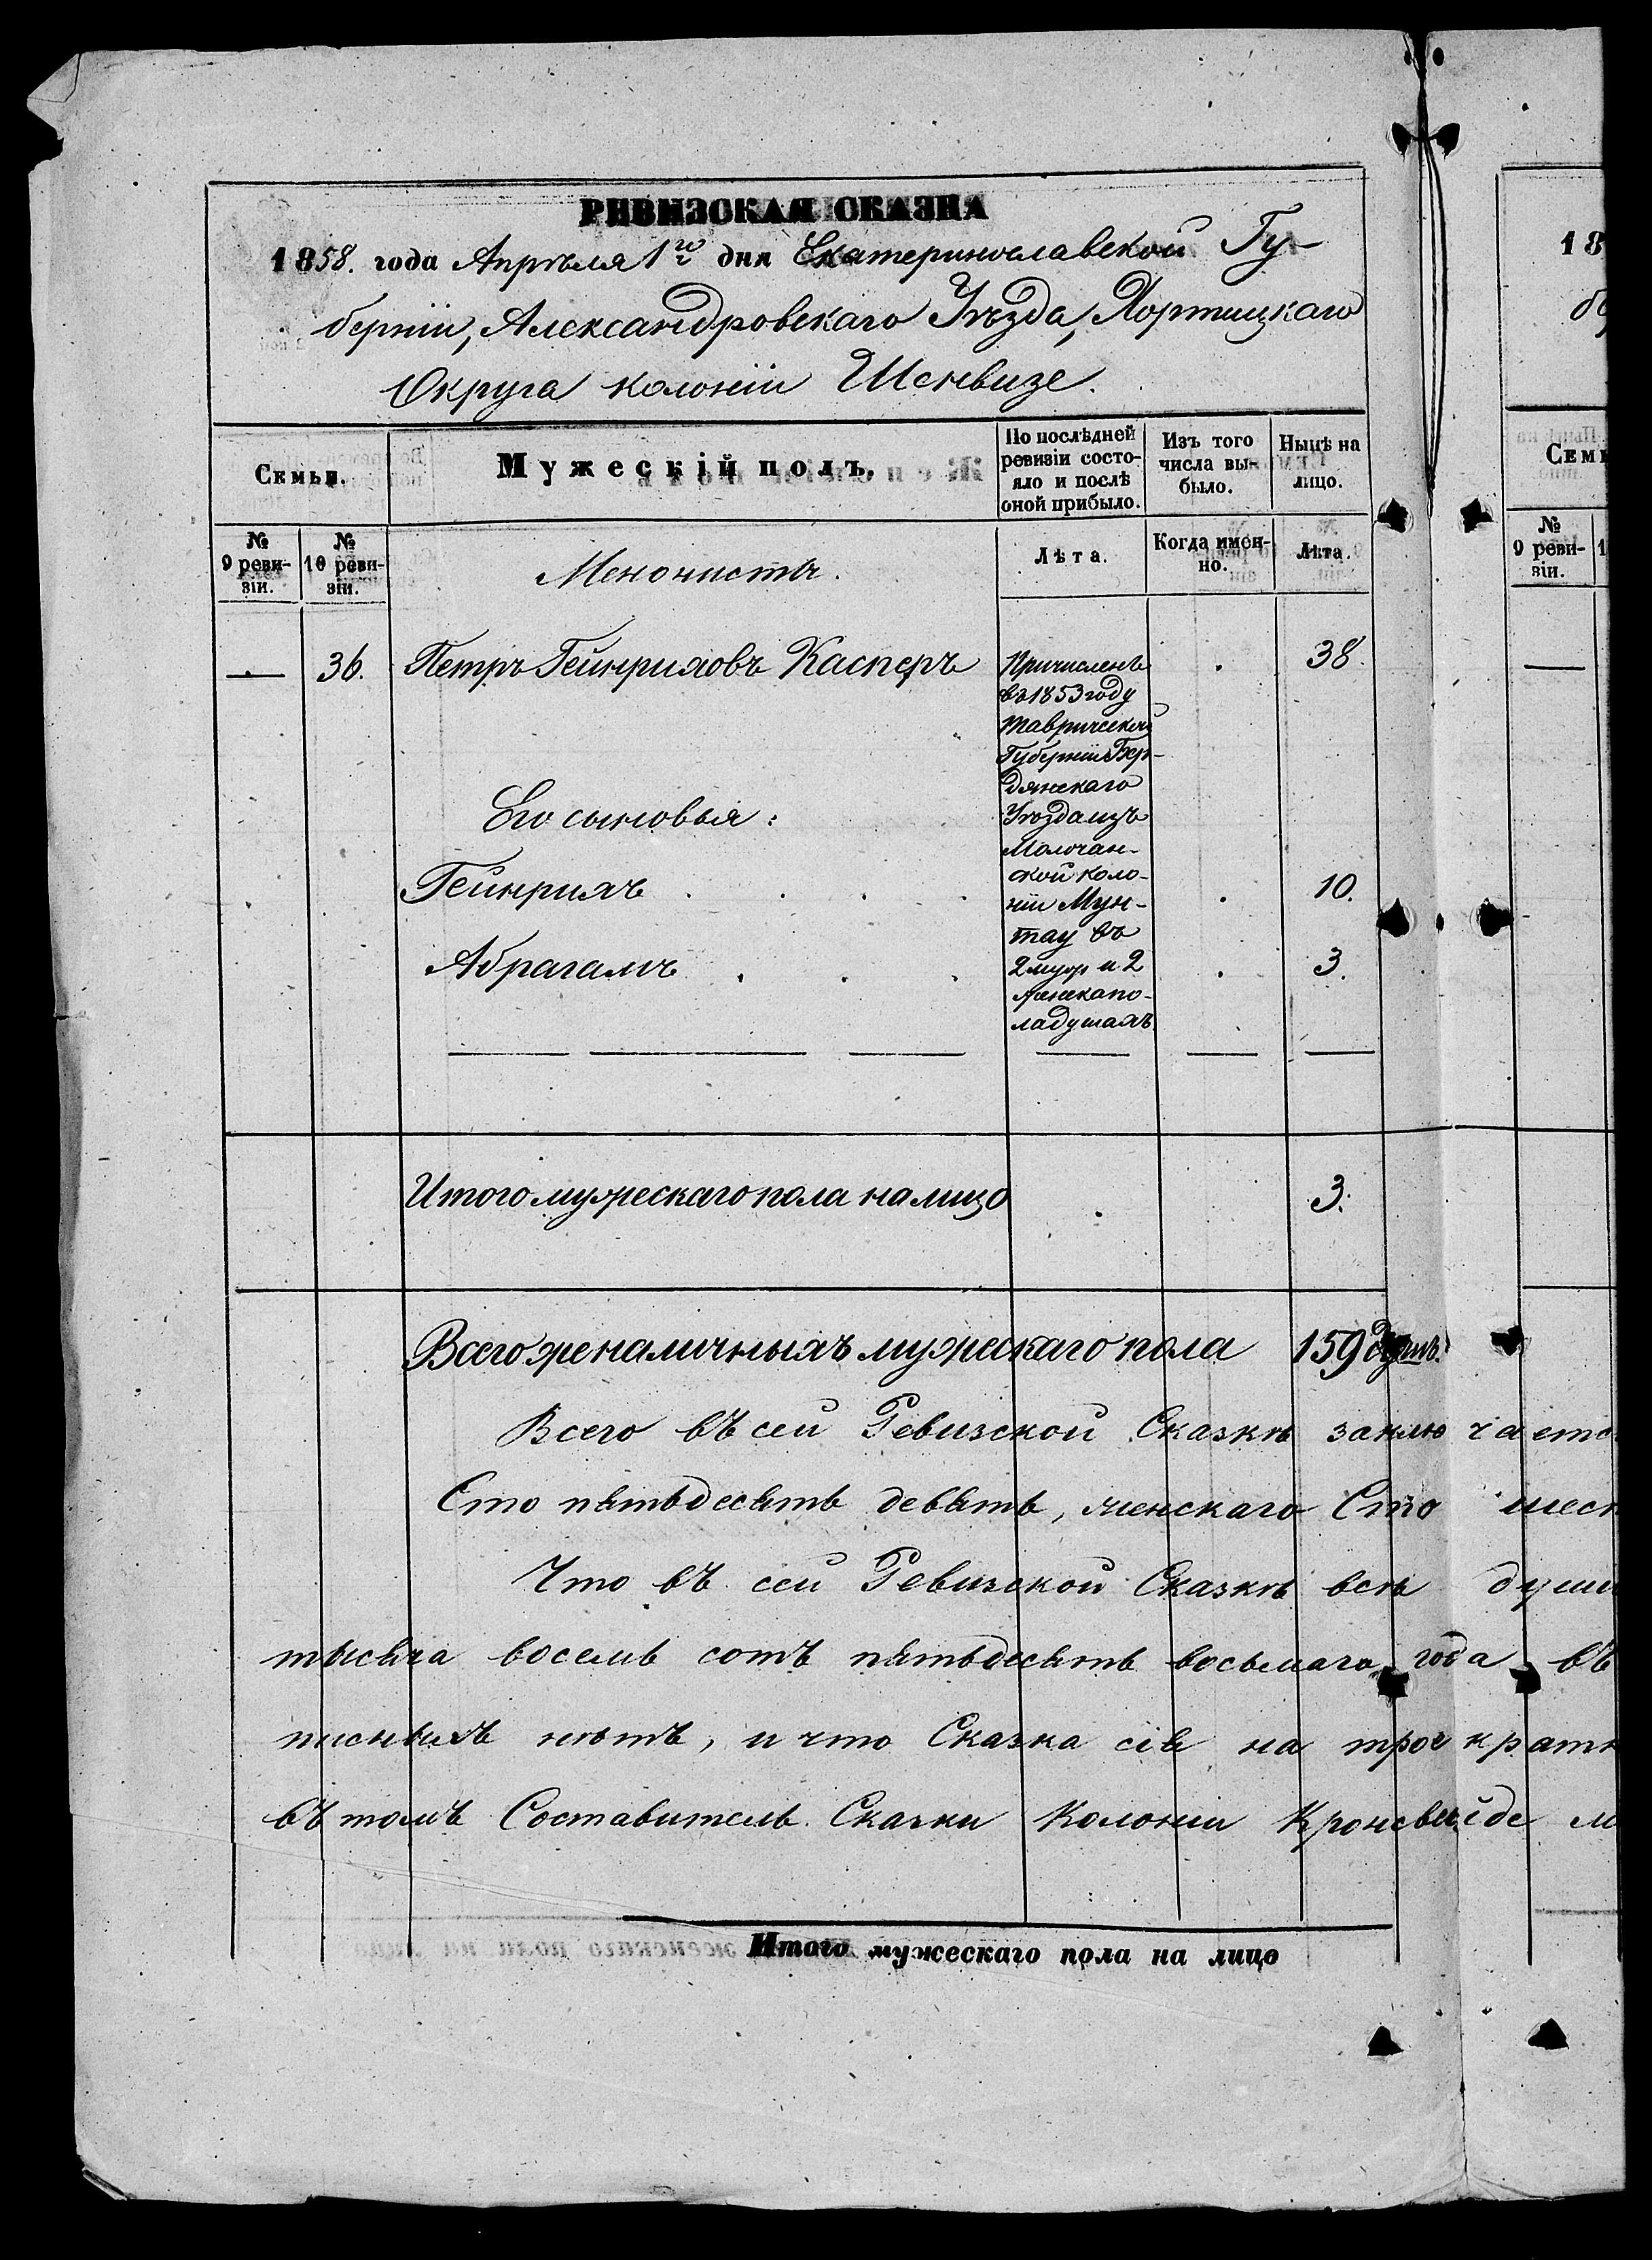 РИВИЗСКАЯ СКАЗКА
1858. года Апрѣля 1го дня Екатеринославской Гу-
берніи, Александровскаго Уѣзда, Хортицкаго
Округа колоніи Шенвизе.
Семьи.
Мужескій полъ.
По послѣдней
ревизіи состо-
яло и послѣ
оной прибыло.
Изъ того
числа вы-
было.
Нынѣ на
лицо.
№
9 реви-
зіи.
№
10 реви-
зіи.
Менонисты.
Лѣта.
Когда имен-
но.
Лѣта.
— 36. Петръ Гейнриховъ Касперъ 38.
Причисленъ
въ 1853 году
Таврической
Губерніи Бер-
дянскаго
Уѣзда изъ
Молочан-
ской коло-
ніи Мун-
тау въ
2 муж и 2
женска по-
ла душахъ
Его сыновья:
Гейнрихъ . . . . 10.
Абрагамъ . . . . 3.
Итого мужескаго пола на лицо . 3.
Всего же наличныхъ мужескаго пола 159 душъ.
Всего въ сей Ревизской Сказкѣ заключаетс
Сто пятьдесятъ девять, женскаго Сто шест
Что въ сей Ревизской Сказкѣ всѣ души
тысяча восемь сотъ пятьдесятъ восьмаго года въ
писныхъ нѣтъ, и что Сказка сія на троекратн
въ томъ Составитель Сказки Колоніи Кронсвейде
Итого мужескаго пола на лицо
18
бе
Семь
№
9 реви-
зіи.
1
—